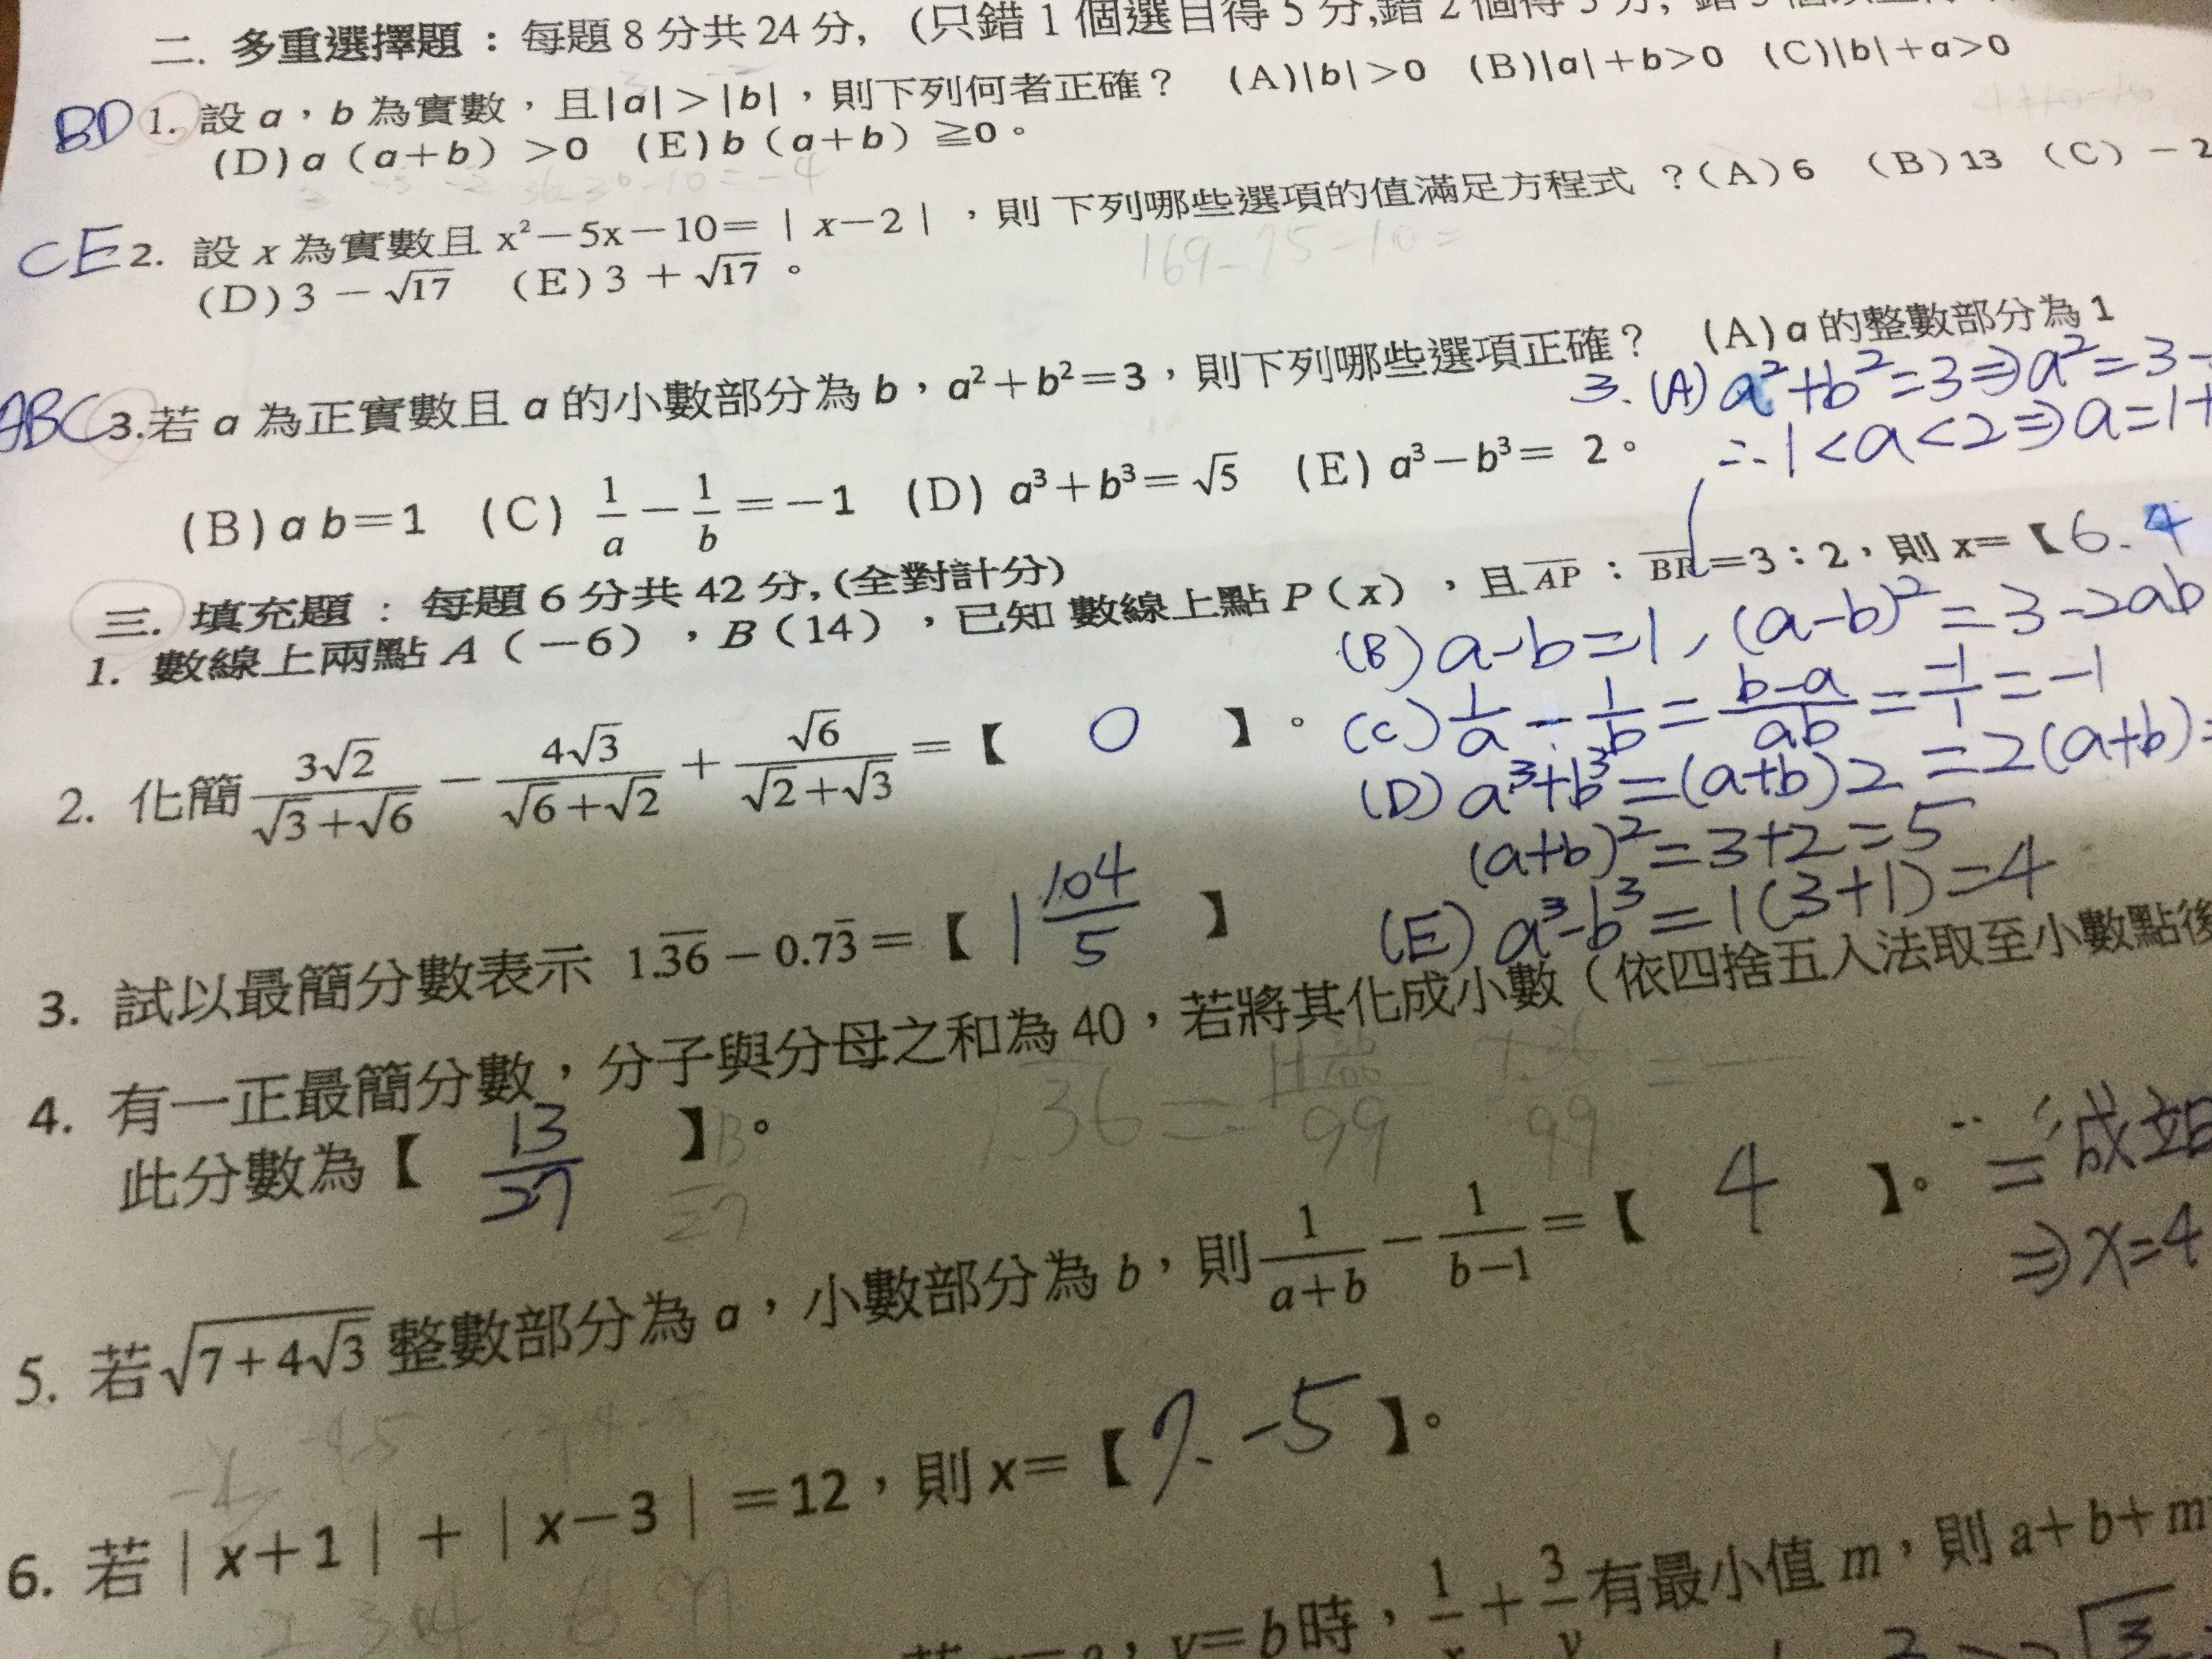 二. 多重選擇題：每題 8 分共 24 分, (只錯 1 個選目得 5 分,錯 2 個得 3 分,
BD 1. 設 a，b 為實數，且|a|>|b|，則下列何者正確？ (A)|b|>0 (B)|a|+b>0 (C)|b|+a>0
(D)a（a+b）>0 (E)b（a+b）≧0。
CE 2. 設 x 為實數且 x²－5x－10=｜x－2｜，則 下列哪些選項的值滿足方程式 ？(A)6 (B)13 (C)－2
(D)3－√17 (E)3＋√17。
169-75-10=
ABC 3.若 a 為正實數且 a 的小數部分為 b，a²+b²=3，則下列哪些選項正確？ (A)a 的整數部分為 1
3. (A) a²+b²=3⇒a²=3-
∴1<a<2⇒a=1+
(B)a b=1 (C) 1/a－1/b=－1 (D) a³+b³=√5 (E) a³－b³= 2。
三. 填充題：每題 6 分共 42 分, (全對計分)
1. 數線上兩點 A（－6），B（14），已知 數線上點 P（x），且 AP：BP=3：2，則 x=【6. 4
(B) a-b=1, (a-b)²=3-2ab
2. 化簡 3√2/(√3+√6) － 4√3/(√6+√2) + √6/(√2+√3) =【 0 】。
(C) 1/a - 1/b = (b-a)/ab = -1/1 = -1
(D) a³+b³=(a+b)2=2(a+b)=
(a+b)²=3+2=5
(E) a³-b³=1(3+1)=4
3. 試以最簡分數表示 1.3̅6̅－0.73̅=【 1 104/5 】
4. 有一正最簡分數，分子與分母之和為 40，若將其化成小數（依四捨五入法取至小數點後
此分數為【 13/27 】。
"="成立
⇒x=4
5. 若√(7+4√3) 整數部分為 a，小數部分為 b，則 1/(a+b) － 1/(b－1) =【 4 】。
6. 若｜x+1｜+｜x－3｜=12，則 x=【 7. -5 】。
y=b 時，1/x + 3/y 有最小值 m，則 a+b+m